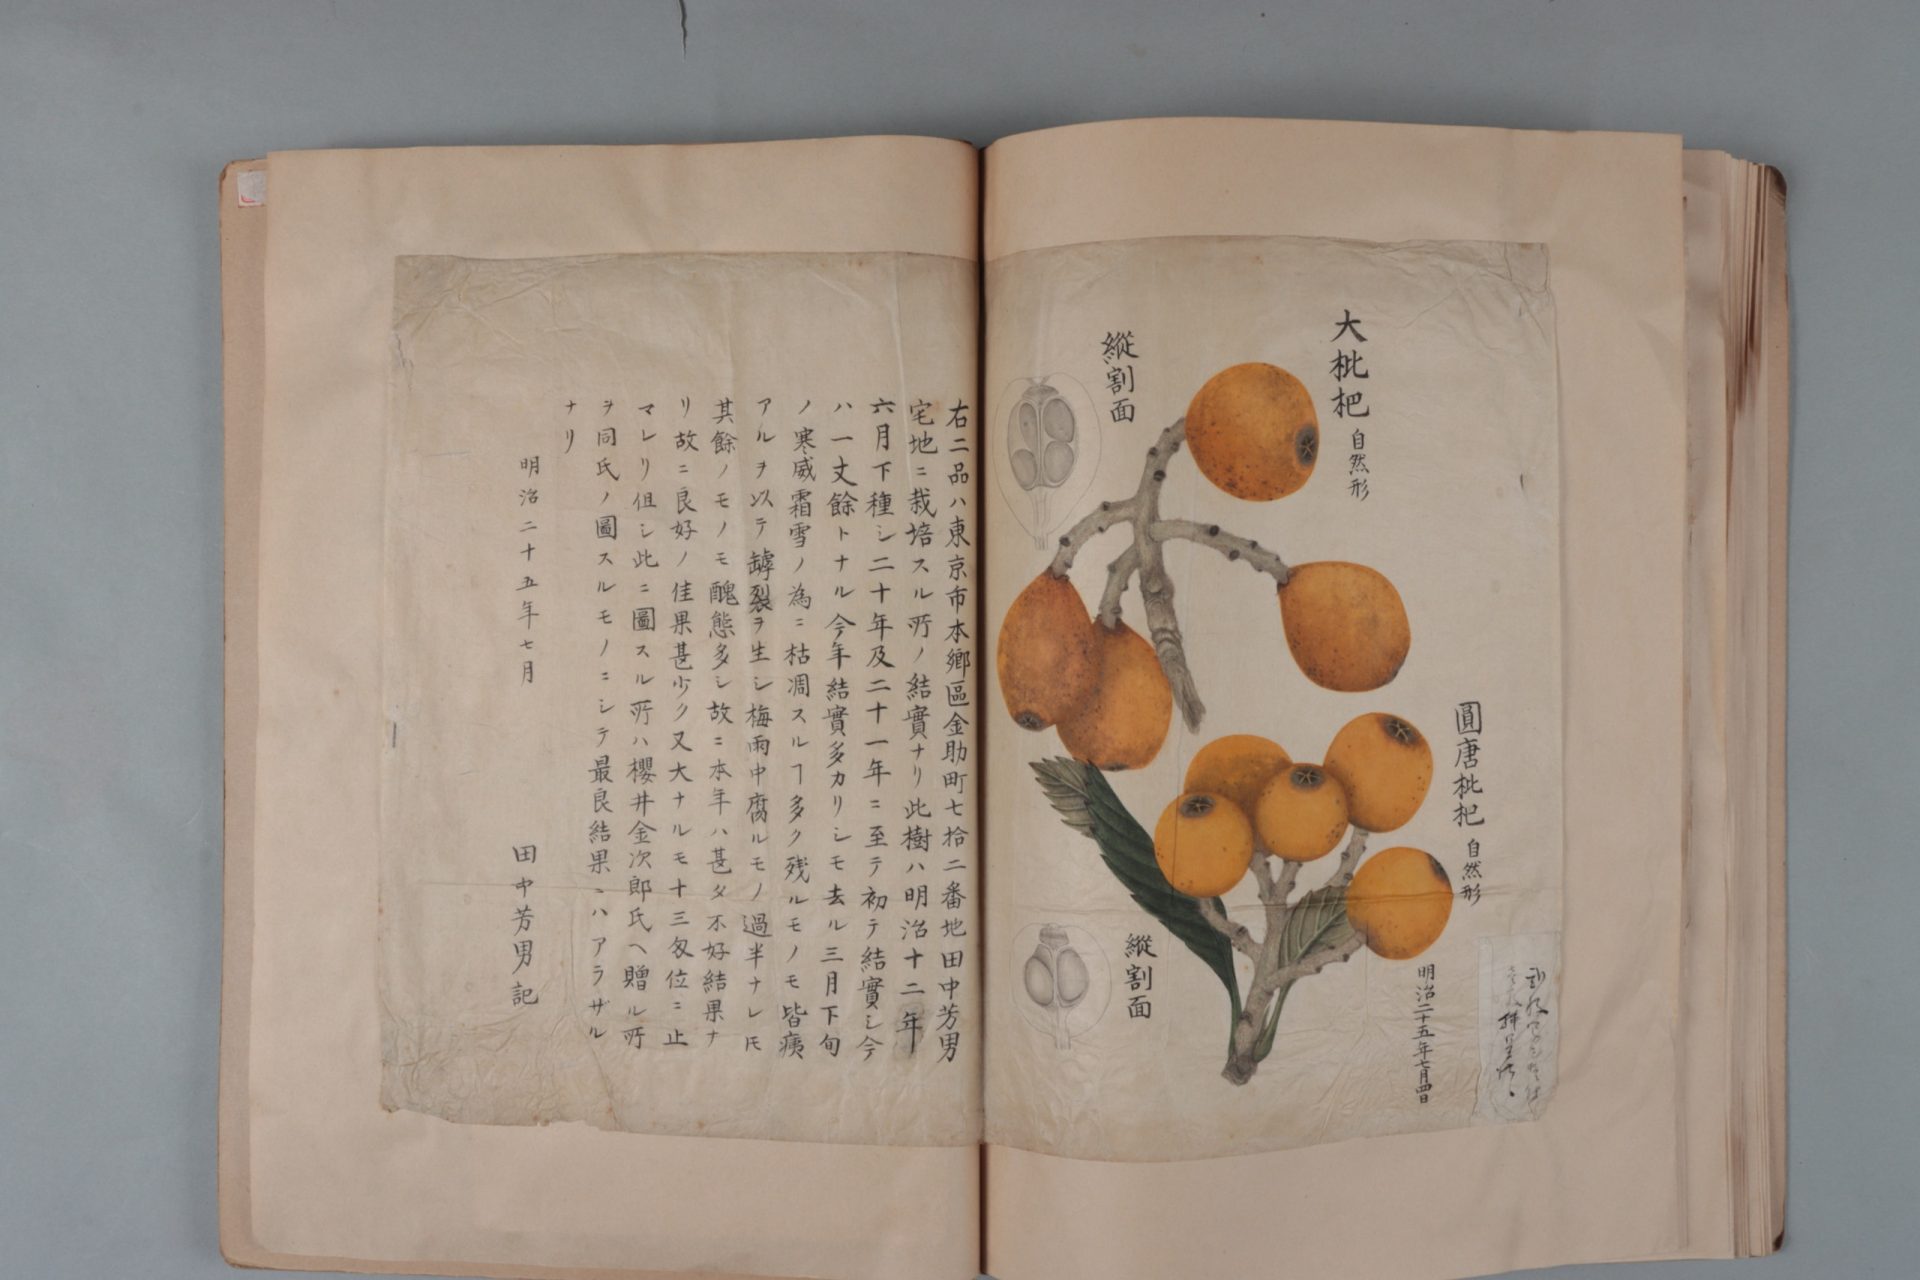 大枇杷 自然形
縱割面
圓唐枇杷 自然形
縱割面
明治二十五年七月四日
右二品ハ東京市本鄉區金助町七拾二番地田中芳男
宅地ニ栽培スル所ノ結實ナリ此樹ハ明治十二年
六月下種シ二十年及二十一年ニ至テ初テ結實シ今
ハ一丈餘トナル今年結實多カリシモ去ル三月下旬
ノ寒威霜雪ノ為ニ枯凋スルヿ多ク残ルモノモ皆痍
アルヲ以テ罅裂ヲ生シ梅雨中腐ルモノ過半ナレ𪜈
其餘ノモノモ醜態多シ故ニ本年ハ甚タ不好結果ナ
リ故ニ良好ノ佳果甚少ク又大ナルモ十三匁位ニ止
マレリ但シ此ニ圖スル所ハ櫻井金次郎氏ヘ贈ル所
ヲ同氏ノ圖スルモノニシテ最良結果ニハアラザル
ナリ
明治二十五年七月
田中芳男記